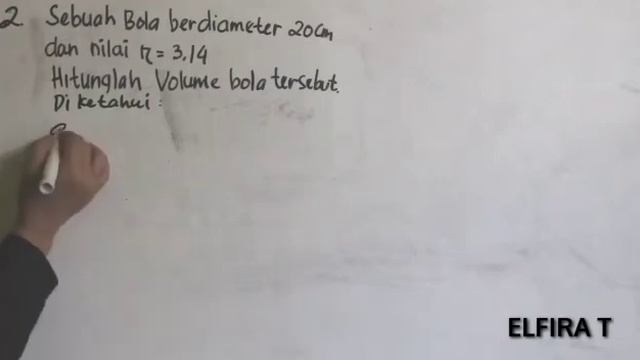 2. Sebuah Bola berdiameter 20 cm
dan nilai π = 3,14
Hitunglah Volume bola tersebut.
Di ketahui :
ELFIRA T